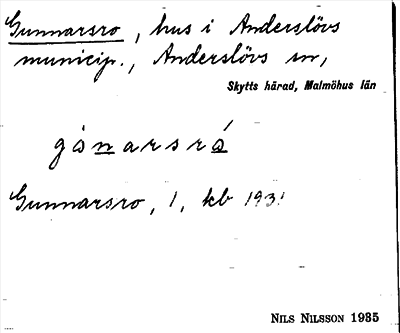 Gunnarsro, hus i Anderslövs
municip., Anderslövs sn,
Skytts härad, Malmöhus län
gånarsrá
Gunnarsro, 1, kb 1931
NILS NILSSON 1935